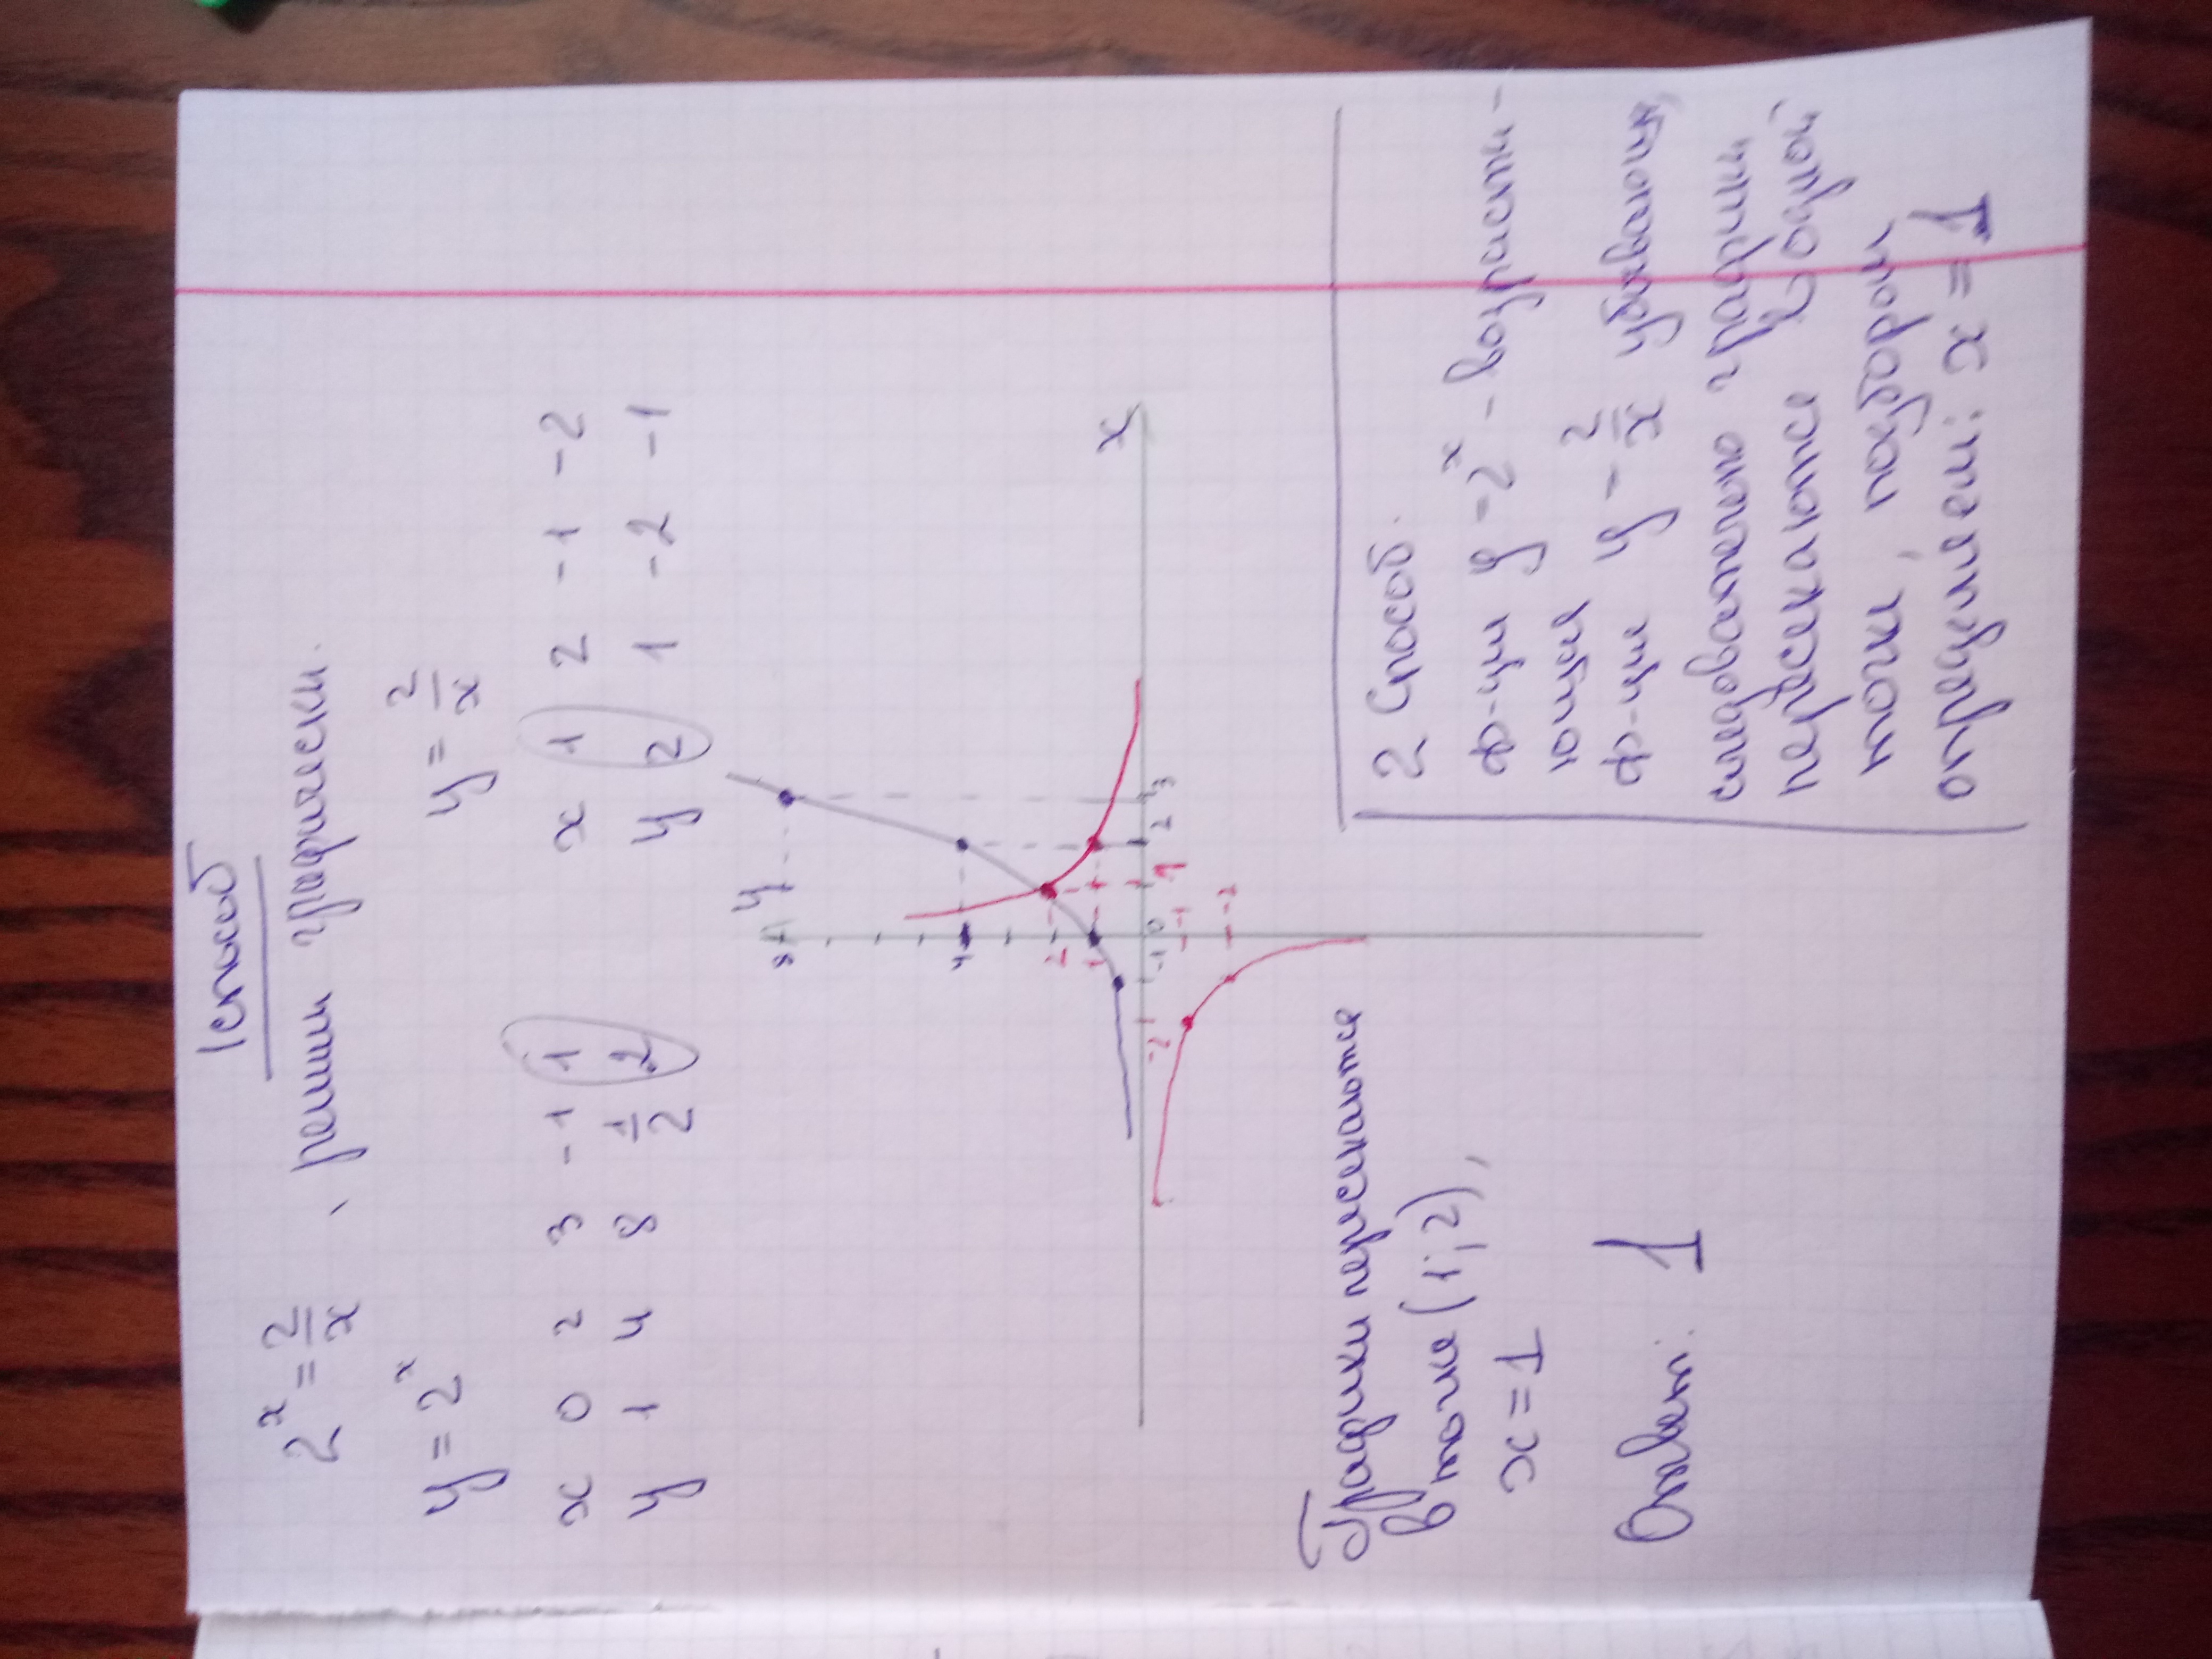 1 способ
2ˣ = 2/x , решим графически.
y = 2ˣ
y = 2/x
x 0 2 3 -1 1
y 1 4 8 1/2 2
x 1 2 -1 -2
y 2 1 -2 -1
y
8
4
2
1
-2 -1 0 1 2 3
x
-1
-2
Графики пересекаются
в точке (1; 2),
x = 1
Ответ: 1
2 способ.
Ф-ции y - 2ˣ - возрастa-
ющая
ф-ции y - 2/x убывающая,
следовательно графики
пересекаются в одной
точки, подбором
определим: x = 1